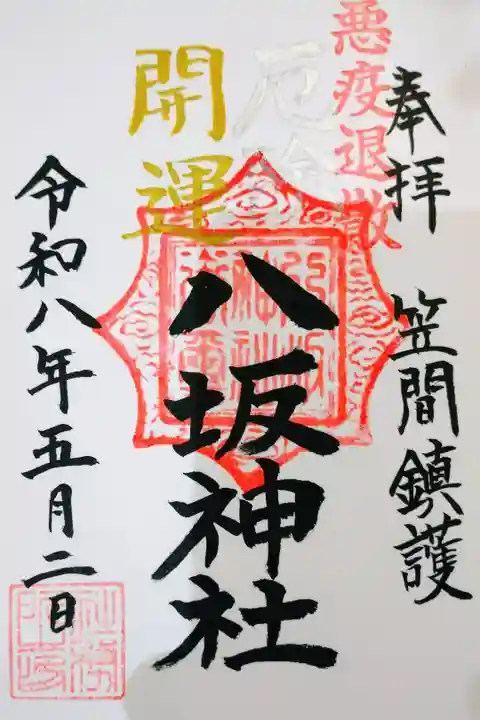 悪疫退散
奉拝 笠間鎮護
厄除
開運
八坂神社
令和八年五月二日
社務所印